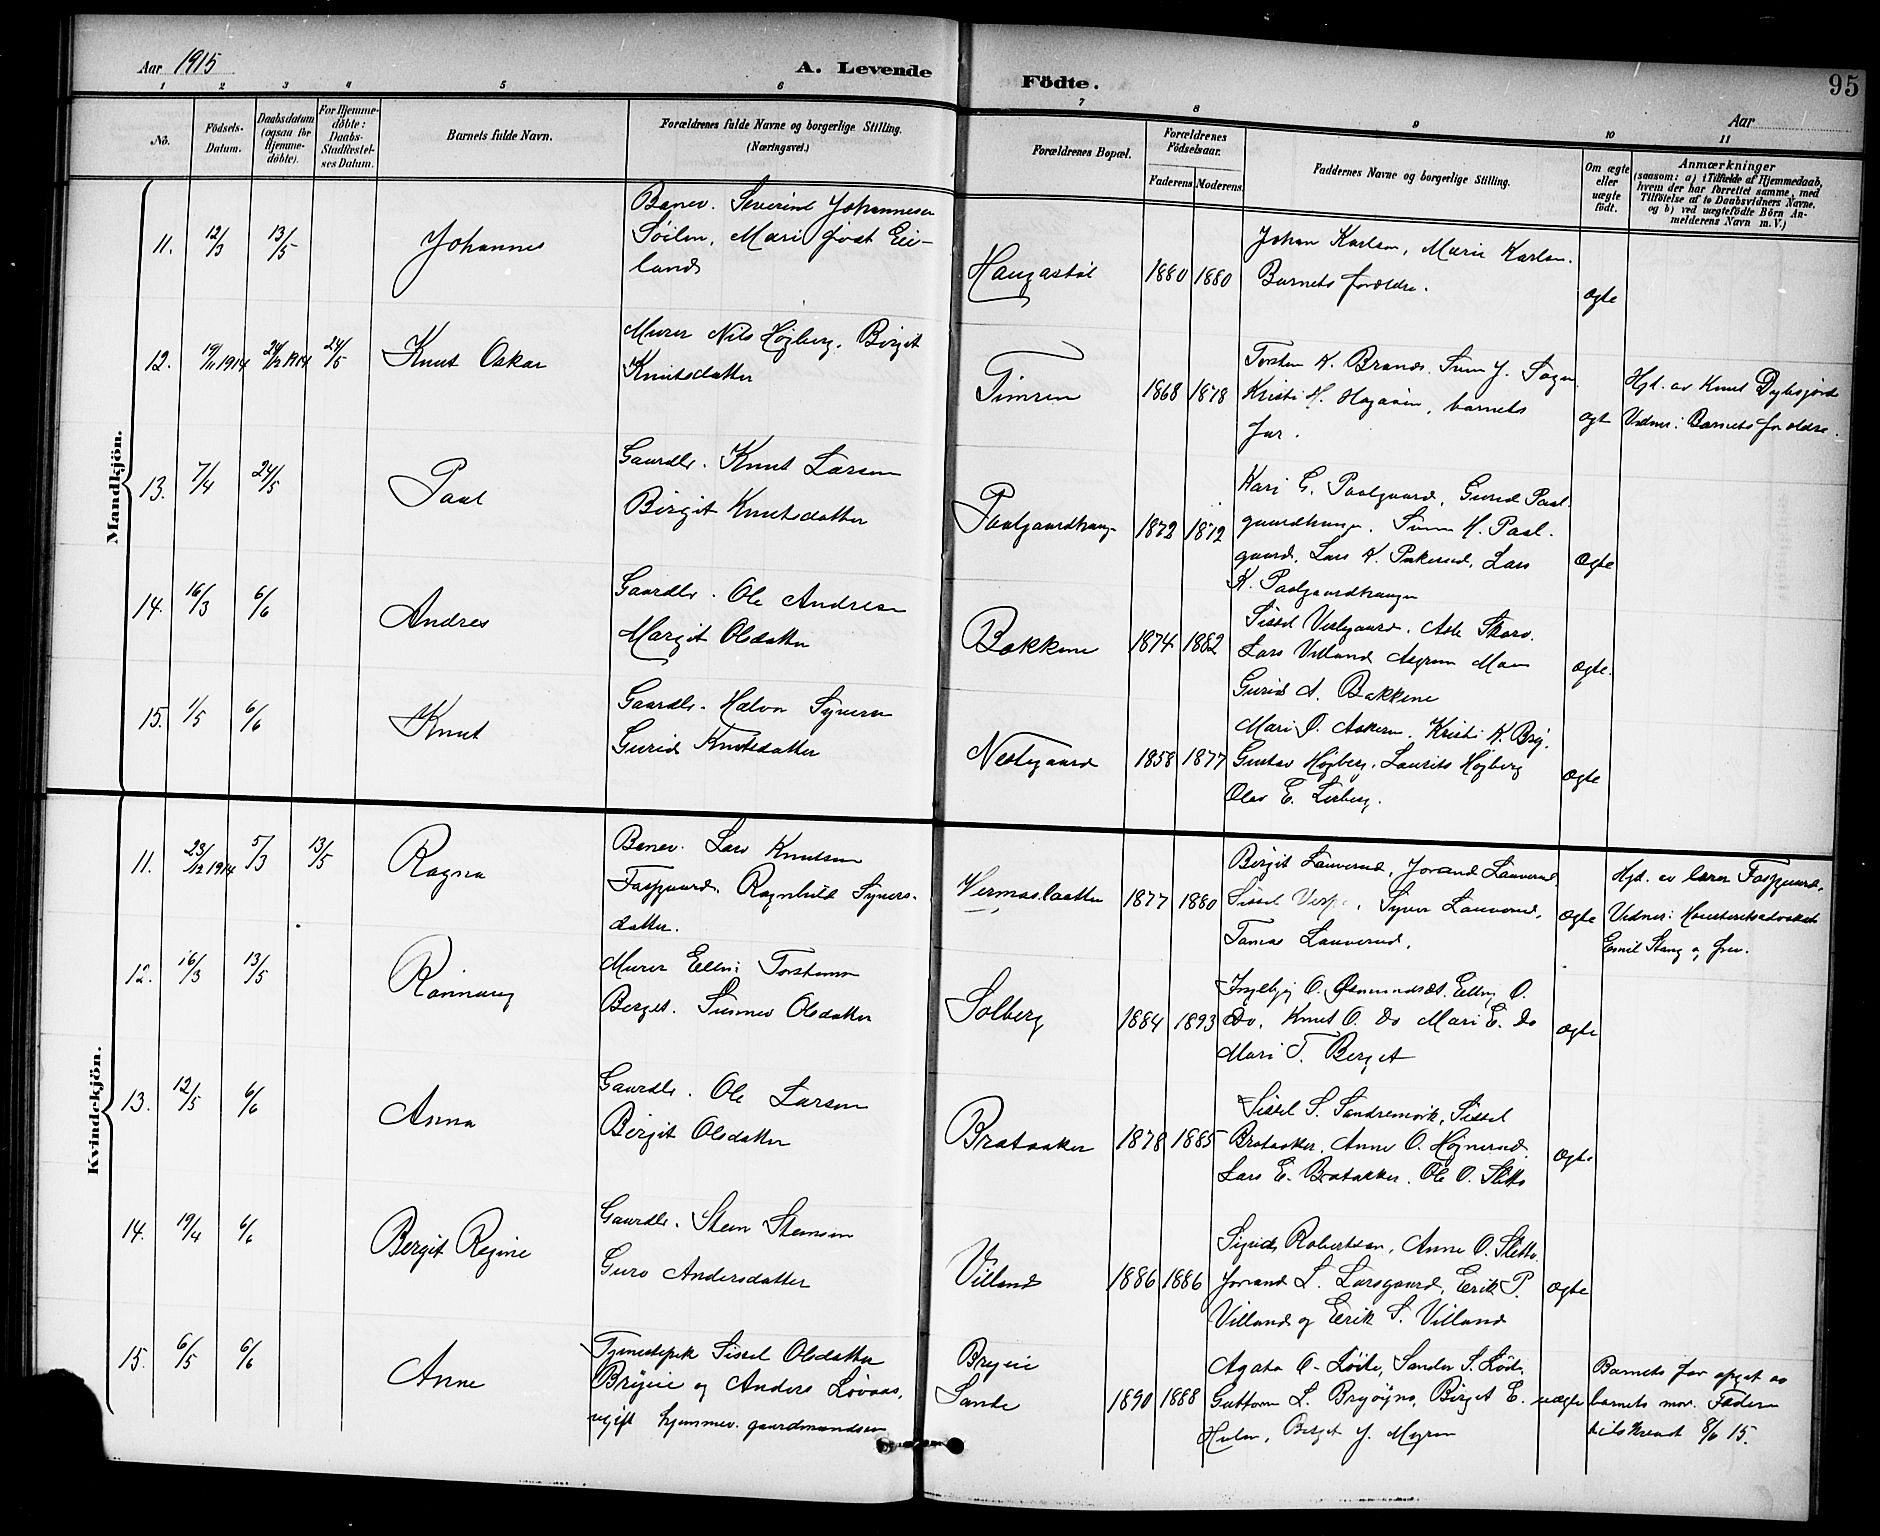 Aar 1915
A. Levende
Födte.
95
Aar
1 2 3 4 5 6 7 8 9 10 11
Nö.
Födsels-
Datum.
Daabsdatum
(ogsaa for
Hjemme-
döbte).
For Hjemme-
döbte:
Daabs-
Stadfæstel-
ses Datum.
Barnets fulde Navn.
Forældrenes fulde Navne og borgerlige Stilling.
(Næringsvei.)
Forældrenes Bopæl.
Forældrenes
Födselsaar.
Faderens
Moderens.
Faddernes Navne og borgerlige Stilling.
Om ægte
eller
uægte
födt.
Anmærkninger
(saasom: a) i Tilfælde af Hjemmedaab,
hvem der har forrettet samme, med
Tilföielse af to Daabsvidners Navne,
og b) ved uægtefödte Börn An-
melderens Navn m. V.)
Mandkjön.
11. 12/3 13/5 Johannes
Banev. Severine Johannesen
Söilen, Mari föst Eei-
land
Haugastöl 1880 1880
Johan Karlsen, Marie Karlsen.
Barnets forældre.
ægte
12. 19/11 1914 24/12 1914 24/5 Knut Oskar
Murer Nils Höjberg. Birgit
Knutsdatter
Timren 1868 1878
Torsten K. Brands. Sven J. Sogn
Kristi H. Hagaain, barnets
far.
ægt
Hjd. av Knut Dybsjord
Vidner: Barnets foreldre.
13. 7/4 24/5 Paal
Gaardbr. Knut Larsen
Birgit Knutsdatter
Paalgaardhaugn 1872 1872
Kari G. Paalgaard, Gurid Paal-
gaardhaugn. H. Paal-
gaard, Lars K. Lars
K. Paalgaardhaugen
ægte
14. 16/3 6/6 Andres
Gaardbr. Ole Andresen
Margit Olsdatter
Bakkene 1874 1882
Sissel Vestegaard. Asle Skaro.
Lars Villand Moen
Gurid A. Bakkene
ægte.
15. 1/5 6/6 Knut
Gaardbr. Halvor Syversen
Gurid Knutsdatter
Nestegaard 1858 1877
Mari O. Kristi K.
Gustav Höjberg, Laurits Höjberg
Olav E. Lirberg.
ægte
Kvindekjön.
11. 23/12 1914 5/3 13/5 Ragna
Banev. Lars Knutsen
Fosgaard. Ragnhild Syvers-
datter.
Vermaslaatten 1877 1880
Birgit Lauverud, Jorand Lauverud,
Sissel Syver Lauverud,
Tomas Lauverud.
ægte
Hjd. av lærer Fosgaard.
Vidner: Höiesteretsadvokat
Emil Stang og frue.
12. 16/3 13/5 Rannaug
Murer Elling Torstensen
Berget. Sunnev Olsdatter
Solberg 1884 1893
Ingebjör O. Elling O.
Do, Knut O. Do Mari E. Do
Mari T. Berget
ægte
13. 12/5 6/6 Anna
Gaardbr. Ole Larsen
Birgit Olsdatter
Brataaker 1878 1885
Sissel S. Sissel
Brataaker, Anne O. Höjnerud,
Lars E. Brataaker. Ole O. Sletto
ægte
14. 19/4 6/6 Bergit Regine
Gaardbr. Stein Steinsen
Guro Andersdatter
Villand 1886 1886
Sigrid Robertsen, Anne O. Sletto
Jorand L. Larsgaard, Erik P.
Villand og Eerik S. Villand
ægte
15. 6/5 6/6 Anne
Tjenestepik Sissel Olsdatter
Bryeie og Anders Lövaas,
ugift hjemmev. gaardmandssön
Bryeie
Sando 1890 1888
Agata O. Löite, Sander S. Löite.
Guttorm L. Bryöigne, Birget E.
Holm, Birget J. Myren
uægte
Barnets far opgit av
barnets mor. Faderen
tilskrevet 8/6 15.